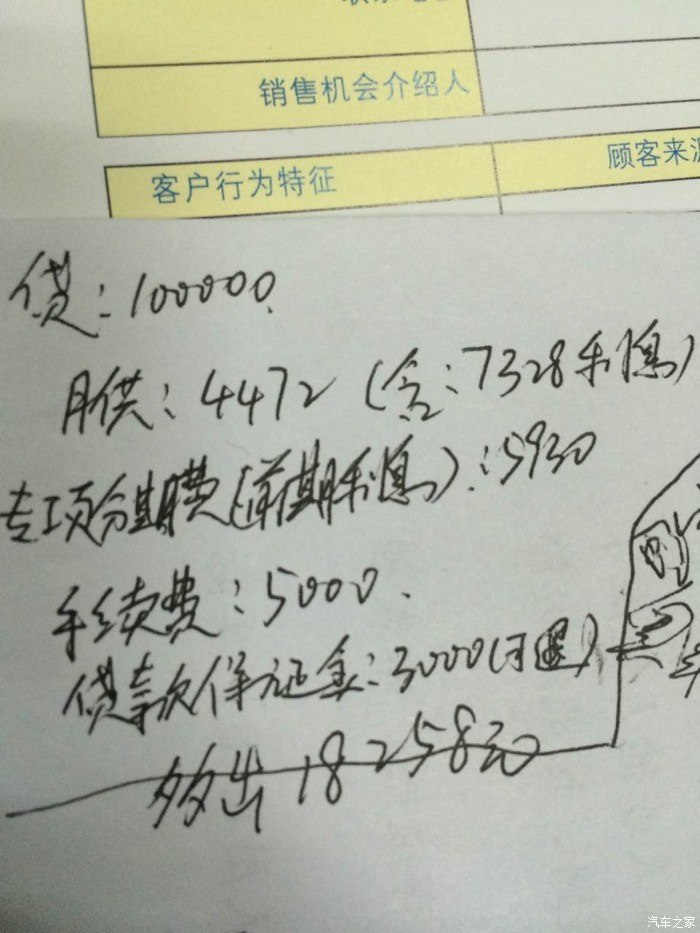 销售机会介绍人
客户行为特征
顾客来源
贷：100000
月供：4472（含：7328利息）
专项分期费（前期利息）：5930
手续费：5000.
贷款保证金：3000（可退）
多出18258元
汽车之家